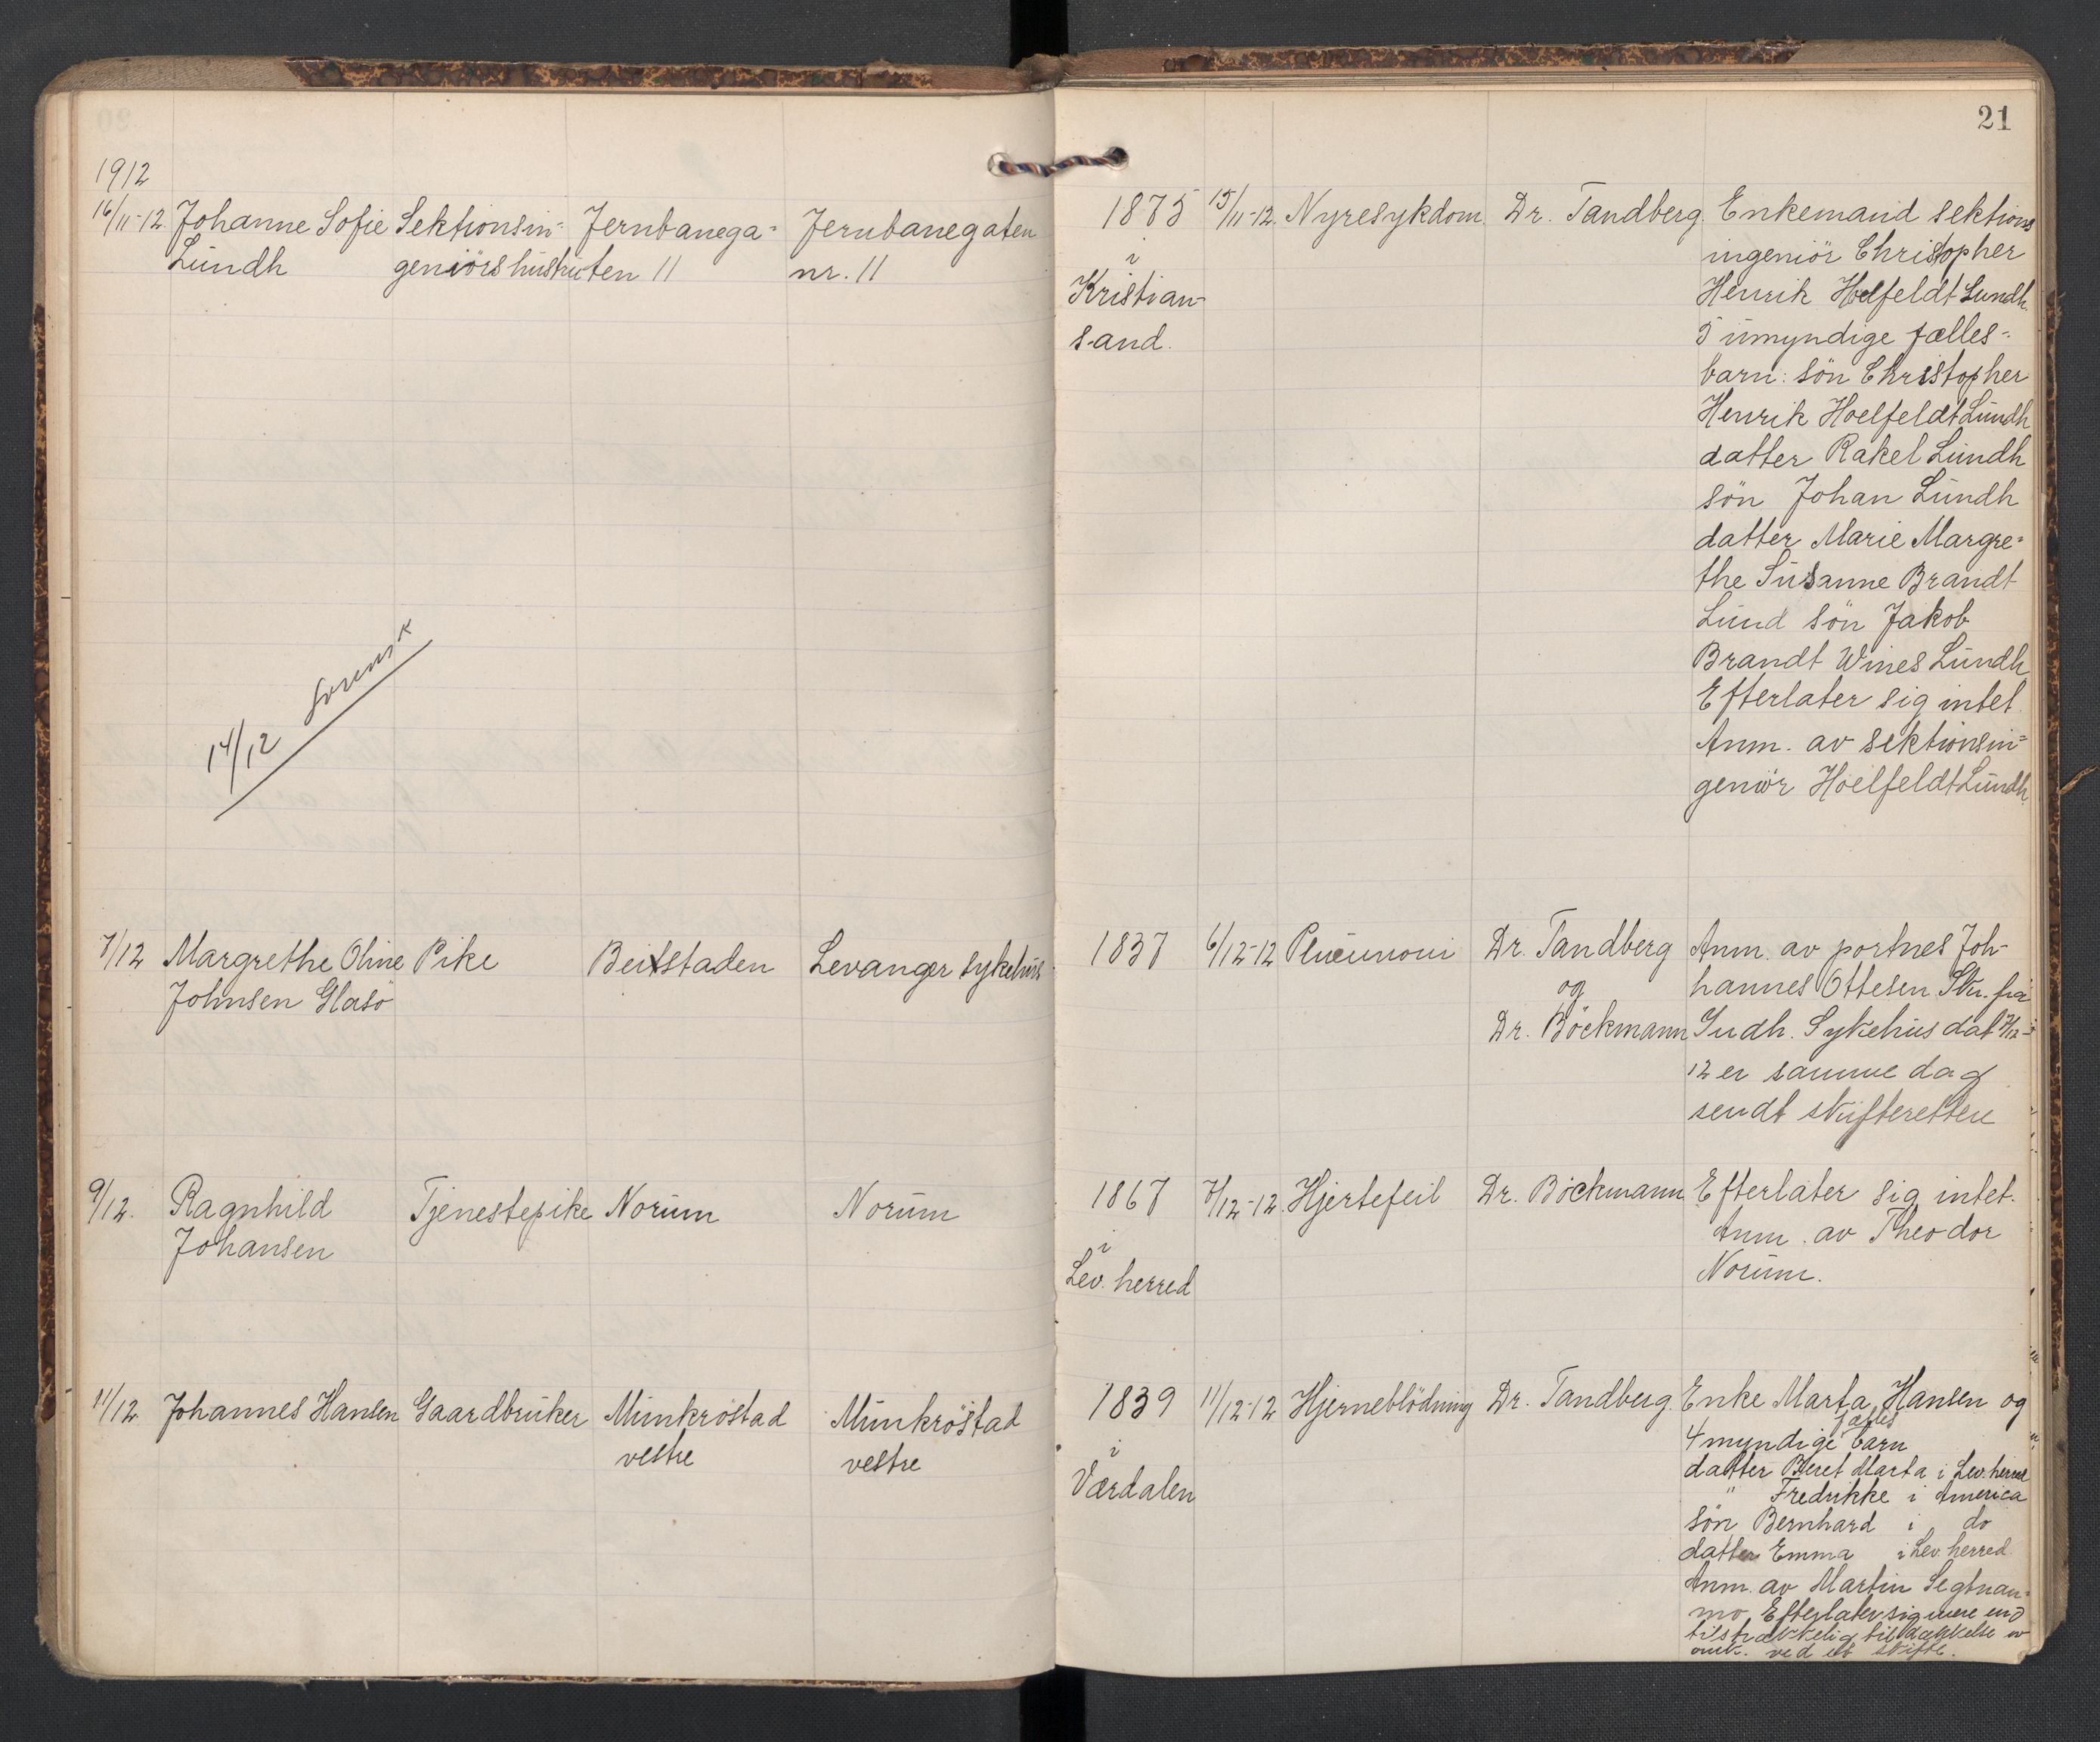 21
1912
16/11-12 Johanne Sofie Sektionsin= Jernbanega= Jernbanegaten 1875 15/11-12. Nyresykdom. Dr. Tandberg. Enkemand sektions
Lundh geniörs hustru ten 11 nr. 11 i ingeniör Christopher
Kristian- Henrik Hoelfeldt Lundh.
sand. 5 umyndige fælles-
barn: sön Christopher
Henrik Hoelfeldt Lundh
datter Rakel Lundh
sön Johan Lundh
datter Marie Margre=
the Susanne Brandt
Lund sön Jakob
Brandt Wines Lundh
Efterlater sig intet.
Anm. av sektionsin=
geniör Hoelfeldt Lundh.
14/12 Sorensk
7/12 Margrethe Oline Pike Beitstaden Levanger sykehus 1837 6/12-12 Pneumoni Dr. Tandberg Anm. av portnes Joh-
Johnsen Glasö og hannes Ottesen Skr. fra
Dr. Böckmann Indh. Sykehus dat 7/12-
12 er samme dag
sendt skifteretten
9/12. Ragnhild Tjenestepike Norum Norum 1867 7/12-12. Hjertefeil Dr. Böckmann Efterlater sig intet.
Johansen i Anm. av Theodor
Lev. herred Norum.
11/12. Johannes Hansen Gaardbruker Munkröstad Munkröstad 1839 11/12-12 Hjerneblödning Dr. Tandberg. Enke Marta Hansen og
vestre vestre i 4 myndige fælles barn
Værdalen datter Beret Marta i Lev. herred
" Fredrikke i America
sön Bernhard i do
datter Emma i Lev. herred
Anm. av Martin Segtnan=
mo. Efterlater sig mere end
tilstrækkelig til dækkelse av
omk. ved et skifte.